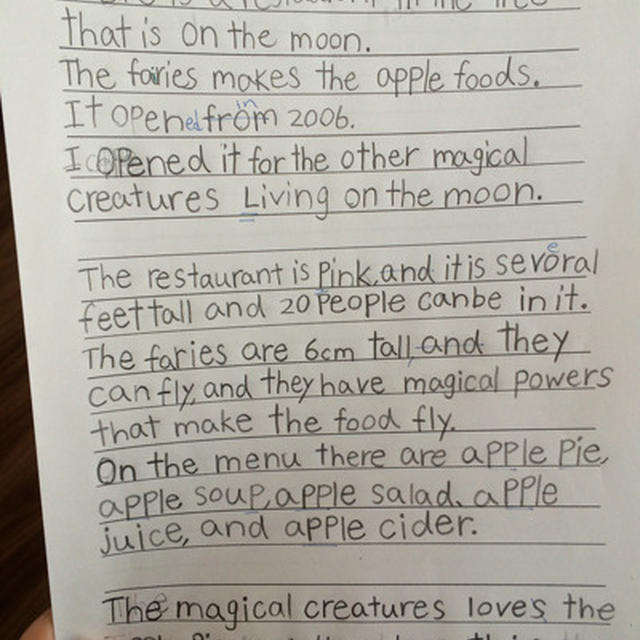 that is on the moon.
The faries makes the apple foods.
It opened from in 2006.
I opened it for the other magical
creatures Living on the moon.
The restaurant is pink, and it is several
feet tall and 20 people can be in it.
The faries are 6cm tall, and they
can fly, and they have magical powers
that make the food fly.
On the menu there are apple pie,
apple soup, apple salad, apple
juice, and apple cider.
The magical creatures loves the